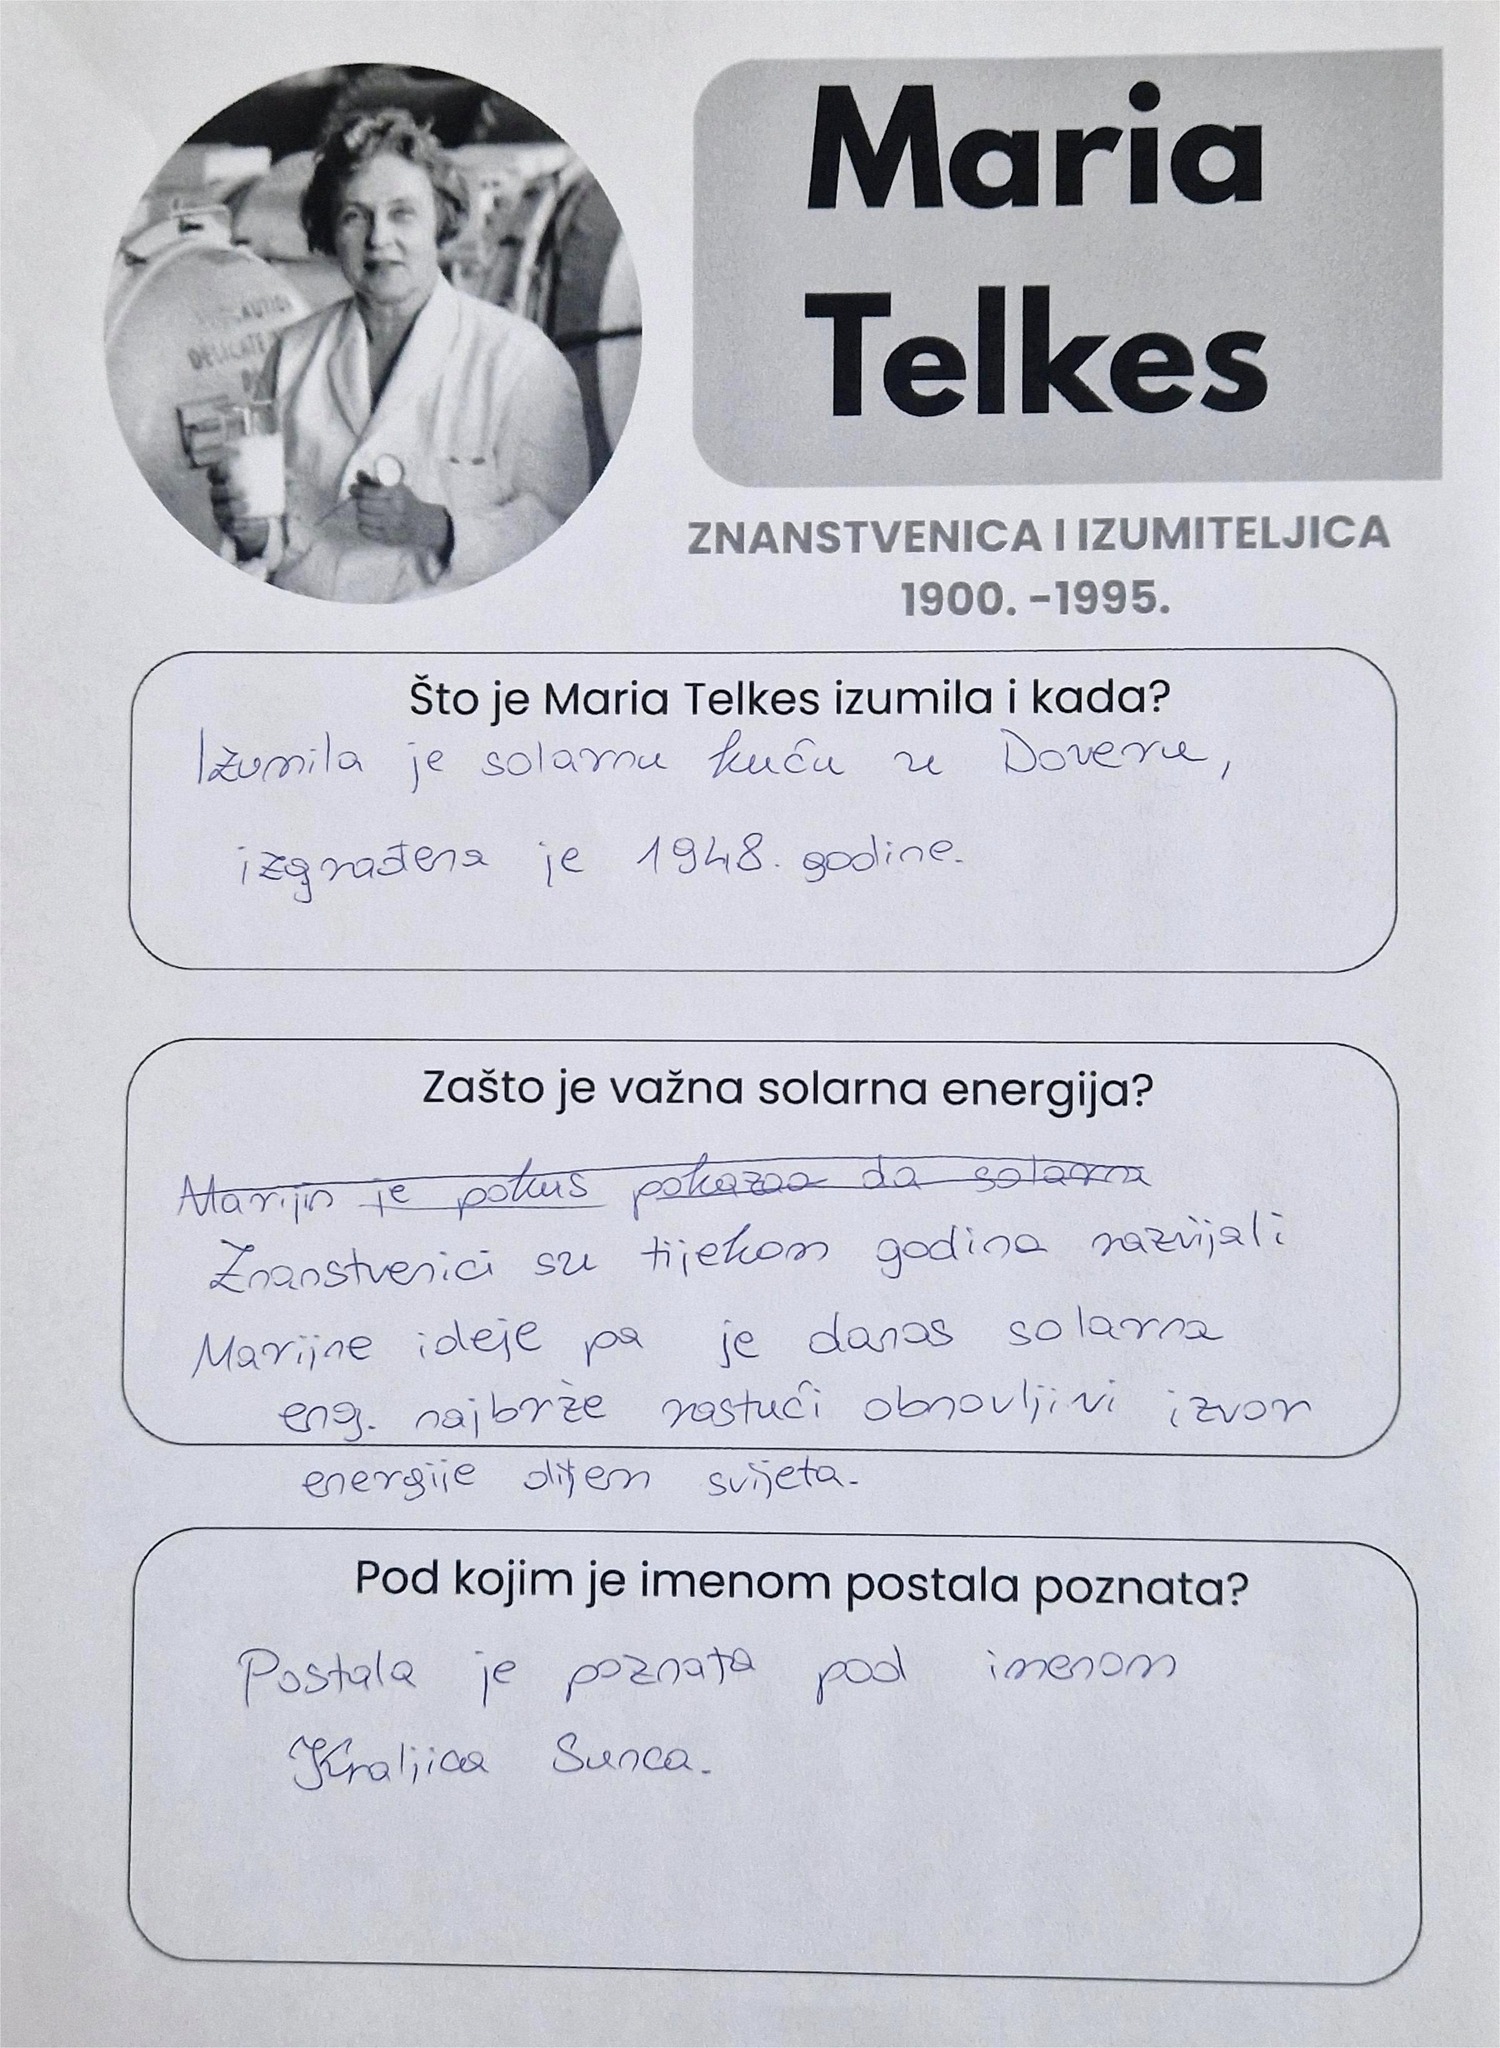 Maria
Telkes
ZNANSTVENICA I IZUMITELJICA
1900. -1995.
Što je Maria Telkes izumila i kada?
Izumila je solarnu kuću u Doveru,
izgrađena je 1948. godine.
Zašto je važna solarna energija?
Marijin je pokus pokazao da solarna
Znanstvenici su tijekom godina razvijali
Marijine ideje pa je danas solarna
eng. najbrže rastući obnovljivi izvor
energije diljem svijeta.
Pod kojim je imenom postala poznata?
Postala je poznata pod imenom
Kraljica Sunca.